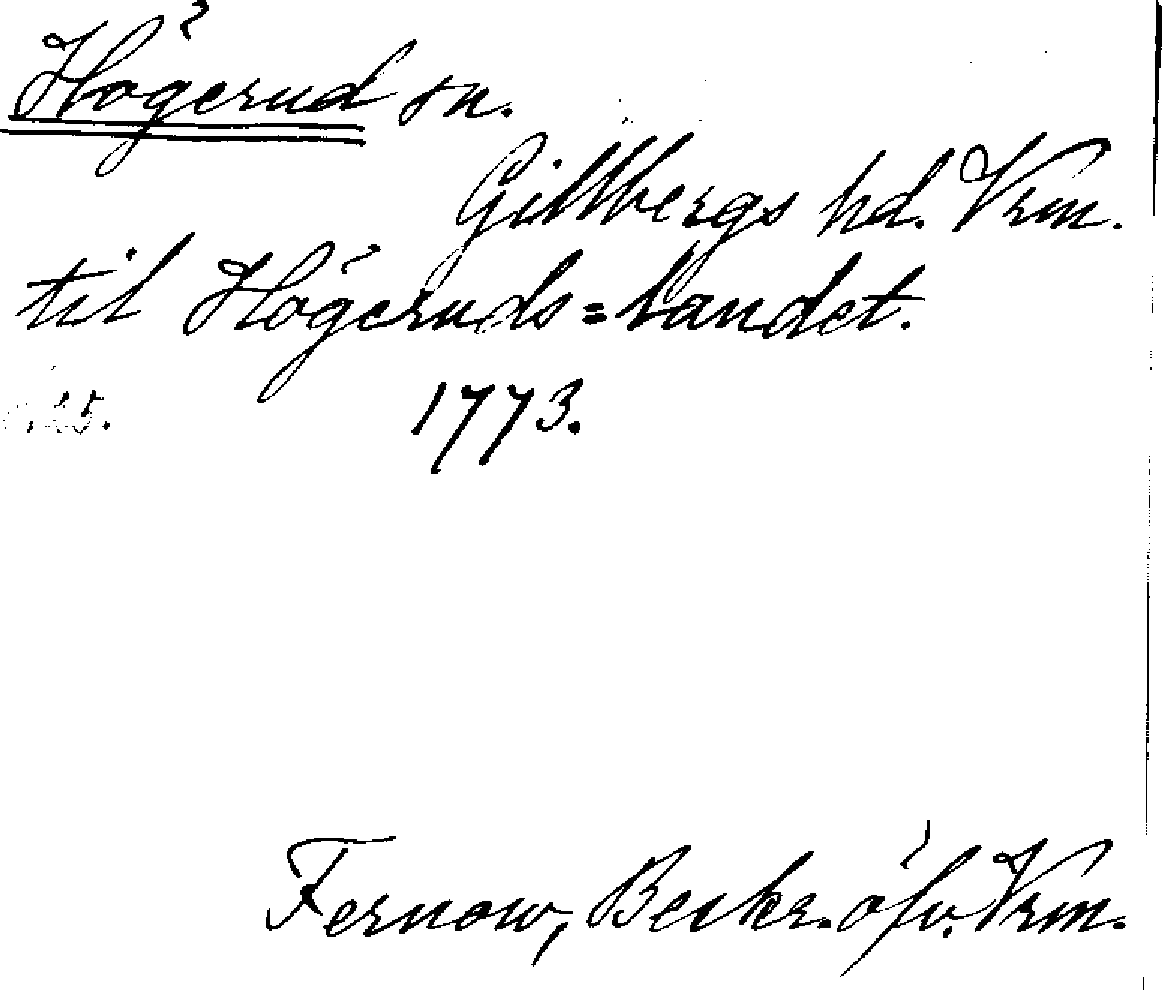 Högerud sn.
Gillbergs hd. Vrm.
til Högeruds=landet.
1773.
Fernow, Beskr. öfv. Vrm.